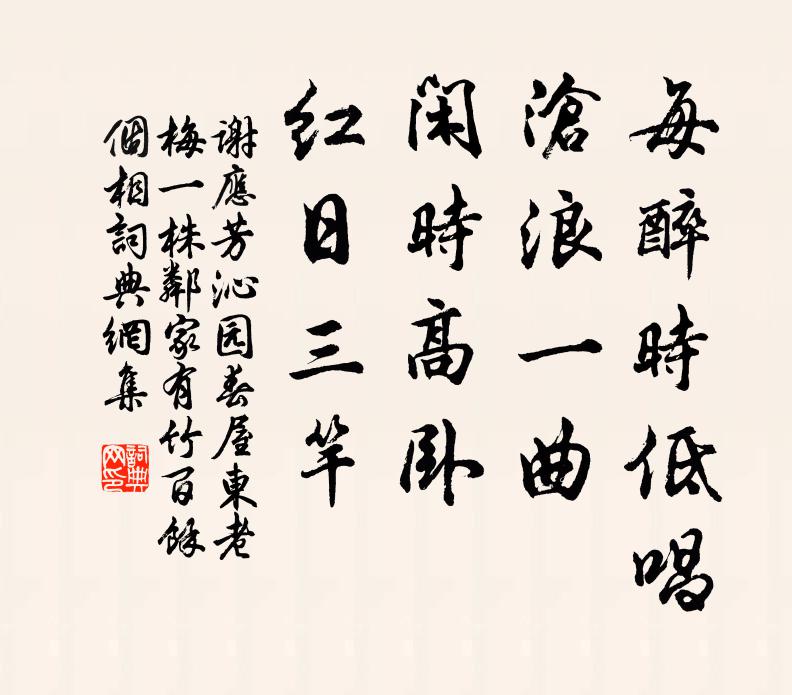 每醉時低唱
滄浪一曲
閑時高卧
红日三竿
谢應芳沁园春屋東老
梅一株鄰家有竹百餘
個相詞典網集
詞典
网印